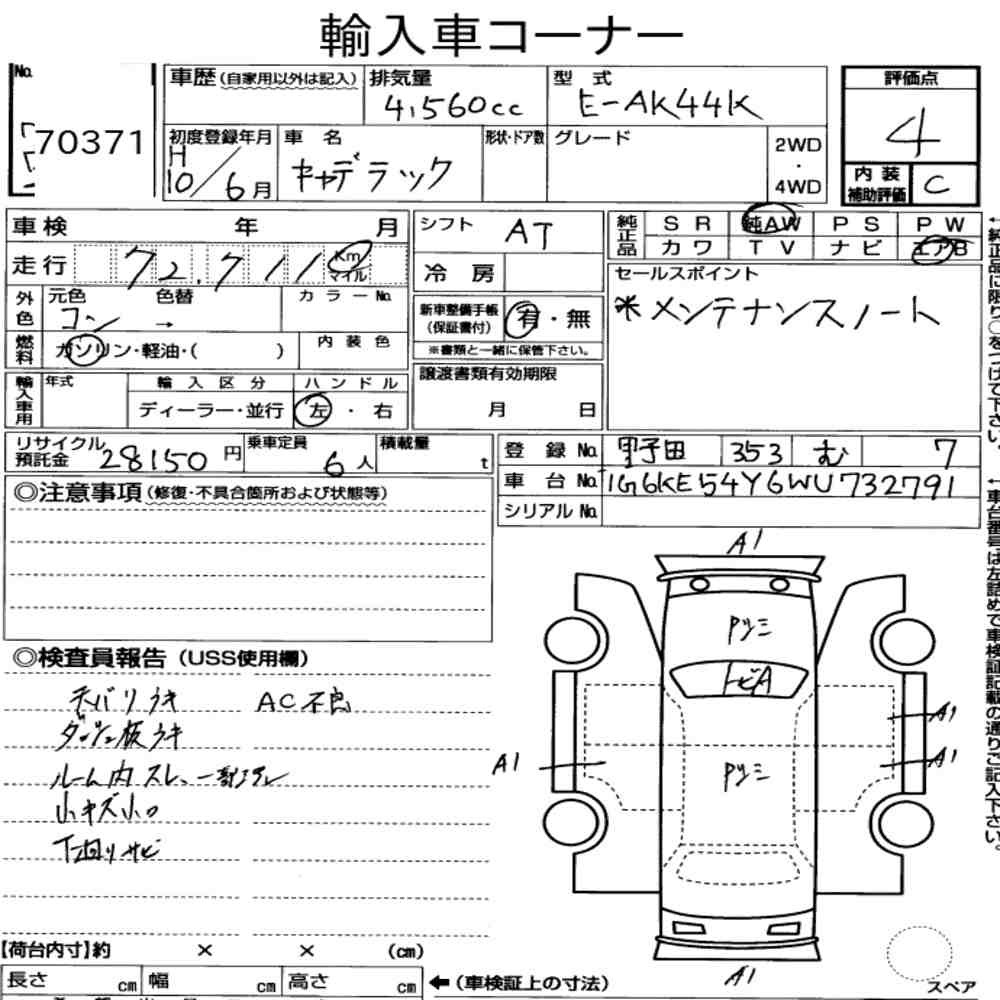 輸入車コーナー
No.
70371
車歴(自家用以外は記入)
排気量
4,560cc
型 式
E-AK44K
評価点
4
初度登録年月
H
10/6月
車 名
キャデラック
形状・ドア数
グレード
2WD
・
4WD
内 装
補助評価
C
車検 年 月
シフト
AT
純正品
SR 純AW PS PW
カワ TV ナビ エアB
走行
72,711
Km
マイル
冷 房
セールスポイント
*メンテナンスノート
外色
元色 色替
コン →
カラーNo.
新車整備手帳
(保証書付)
有・無
※書類と一緒に保管下さい。
燃料
ガソリン・軽油・( )
内 装 色
譲渡書類有効期限
月 日
輸入車用
年式
輸 入 区 分
ディーラー・並行
ハ ン ド ル
左 ・ 右
リサイクル
預託金
28150円
乗車定員
6人
積載量
t
登 録 No.
野田 353 む 7
車 台 No.
1G6KE54Y6WU732791
シリアル No.
◎注意事項(修復・不具合箇所および状態等)
◎検査員報告(USS使用欄)
天バリウキ
AC不良
ダッシュ板ウキ
ルーム内スレ、一部
小キズ小凹
下回りサビ
A1
Pツミ
トビA
A1
A1
A1
Pツミ
A1
スペア
【荷台内寸】約 × × (cm)
長さ cm
幅 cm
高さ cm
←(車検証上の寸法)
←純正品に限り○をつけて下さい。
←車台番号は左詰めで車検証記載の通りご記入下さい。